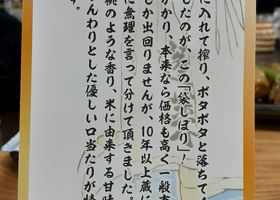 に入れて搾り、ポタポタと落ちてく
したのが、この「袋しぼり」！
かかり、本来なら価格も高く一般市
しか出回りませんが、10年以上蔵に
に無理を言って分けて頂きました。
桃のような香り、米に由来する甘味
んわりとした優しい口当たりが特
す。